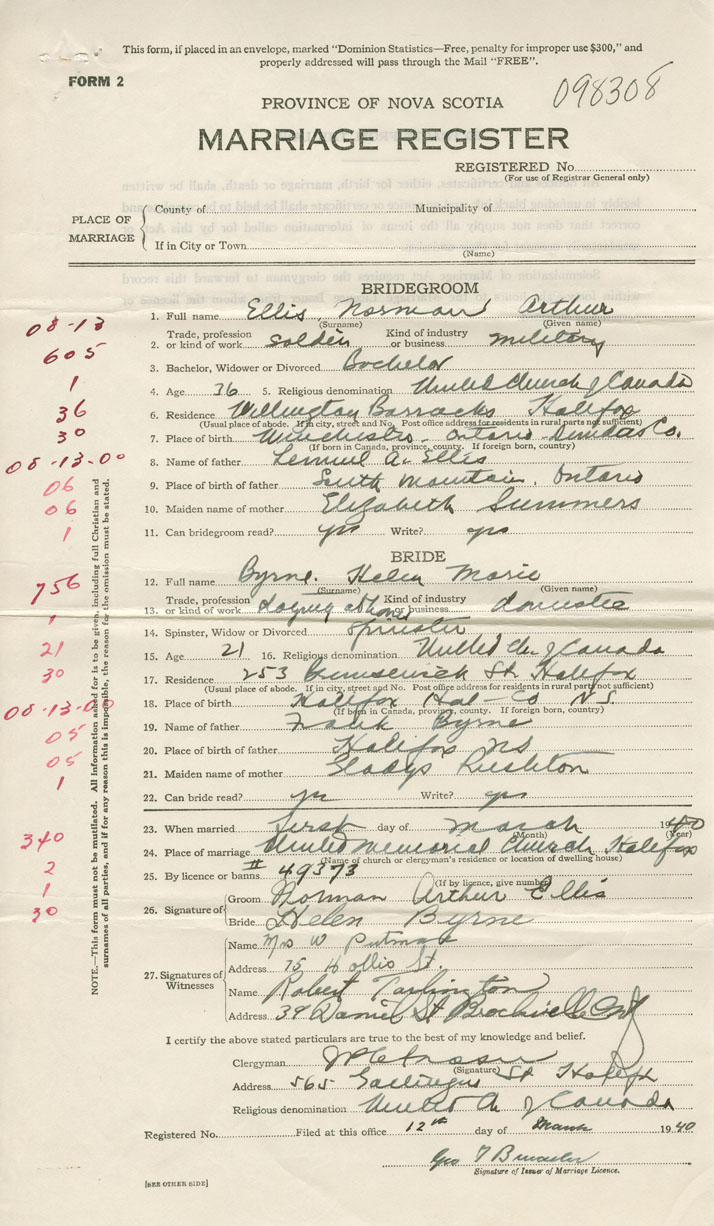 This form, if placed in an envelope, marked "Dominion Statistics—Free, penalty for improper use $300," and
properly addressed will pass through the Mail "FREE".
FORM 2
098308
PROVINCE OF NOVA SCOTIA
MARRIAGE REGISTER
REGISTERED No.
(For use of Registrar General only)
PLACE OF MARRIAGE
County of Municipality of
If in City or Town
(Name)
BRIDEGROOM
1. Full name Ellis, Norman Arthur
(Surname) (Given name)
08-13
2. Trade, profession or kind of work Soldier Kind of industry or business military
605
3. Bachelor, Widower or Divorced Bachelor
1
4. Age 36 5. Religious denomination United Church of Canada
36
6. Residence Wellington Barracks Halifax
(Usual place of abode. If in city, street and No. Post office address for residents in rural parts not sufficient)
30
7. Place of birth Winchester Ontario Dundas Co.
(If born in Canada, province, county. If foreign born, country)
08-13-00
8. Name of father Lemuel A. Ellis
06
9. Place of birth of father South Mountain, Ontario
06
10. Maiden name of mother Elizabeth Summers
1
11. Can bridegroom read? yes Write? yes
BRIDE
12. Full name Byrne. Helen Marie
(Surname) (Given name)
756
13. Trade, profession or kind of work Staying at home Kind of industry or business domestic
1
14. Spinster, Widow or Divorced Spinster
21
15. Age 21 16. Religious denomination United Ch. of Canada
30
17. Residence 253 Brunswick St. Halifax
(Usual place of abode. If in city, street and No. Post office address for residents in rural parts not sufficient)
08-13-00
18. Place of birth Halifax Hal- Co N.S.
(If born in Canada, province, county. If foreign born, country)
05
19. Name of father Frank Byrne
05
20. Place of birth of father Halifax NS
1
21. Maiden name of mother Gladys Rushton
22. Can bride read? yes Write? yes
23. When married first day of March 1940
(Month) (Year)
340
24. Place of marriage United Memorial Church Halifax
(Name of church or clergyman's residence or location of dwelling house)
2
25. By licence or banns # 49373
(If by licence, give number)
1
30
26. Signature of
Groom Norman Arthur Ellis
Bride Helen Byrne
27. Signatures of Witnesses
Name Mrs W Putman
Address 75 Hollis St.
Name Robert Tarlington
Address 39 Daniel St Brockville Ont
NOTE.—This form must not be mutilated. All information asked for is to be given, including full Christian and
surnames of all parties, and if for any reason this is impossible, the reason for the omission must be stated.
I certify the above stated particulars are true to the best of my knowledge and belief.
Clergyman
(Signature)
Address 565 St Halifax
Religious denomination United Ch of Canada
Registered No. Filed at this office 12th day of March 1940
Geo
Signature of Issuer of Marriage Licence.
[SEE OTHER SIDE]